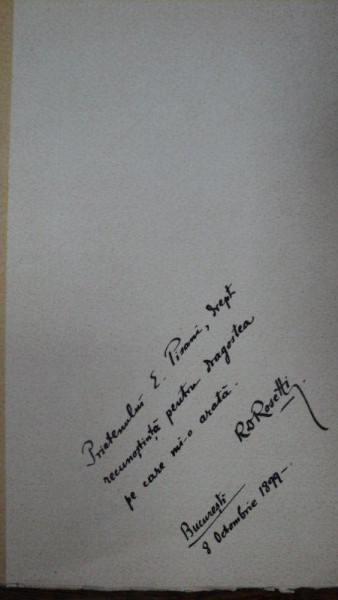 Prietenului E. Pisani, drept
recunoştinţă pentru dragostea
pe care mi-o arată.
R.D. Rosetti
Bucureşti
8 Octombrie 1899-